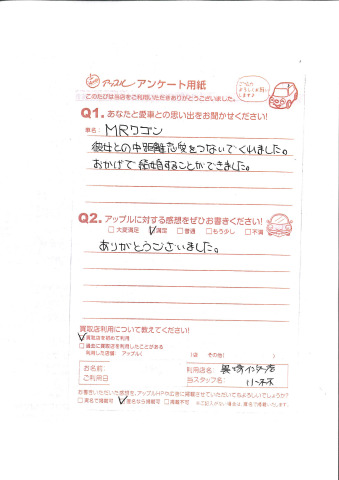 アップル アンケート用紙
このたびは当店をご利用いただきありがとうございました。
Q1. あなたと愛車との思い出をお聞かせください!
車名: MRワゴン
彼女との中距離恋愛をつないでくれました。
おかげで結婚することができました。
Q2. アップルに対する感想をぜひお書きください!
□大変満足 ☑満足 □普通 □もう少し □不満
ありがとうございました。
買取店利用について教えてください!
☑買取店を初めて利用
□過去に買取店を利用したことがある
利用した店舗: アップル( )店 その他( )
お名前:
ご利用日
利用店名: インター店
当スタッフ名: 小林
お書きいただいた感想を、アップルHPや広告に掲載させていただいてもよろしいでしょうか?
□実名で掲載可 ☑匿名なら掲載可 □掲載不可 ※ご記入がない場合は、匿名で掲載いたします。